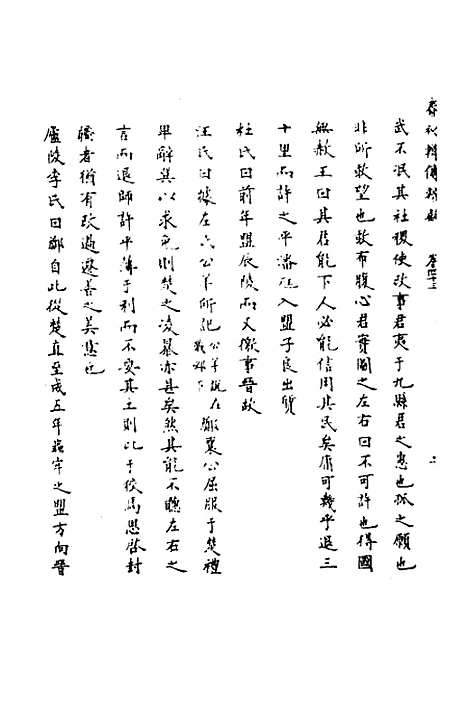 春秋辑傳辨疑 卷四十三 二
武不泯其社稷使改事君夷于九縣君之惠也孤之願也
非所敢望也敢布腹心君實圖之左右曰不可許也得國
無赦王曰其君能下人必能信用其民矣庸可幾乎退三
十里而許之平潘尪入盟子良出質
杜氏曰前年盟辰陵而又徼事晉故
汪氏曰據左氏公羊所紀公羊說在戰邲下鄭襄公屈服于楚禮
卑辭巽以求免則楚之凌暴亦甚矣然其能不聽左右之
言而退師許平薄于利而不要其土則比于役馬思啓封
疆者猶有改過遷善之美意也
廬陵李氏曰鄭自此從楚直至成五年蟲牢之盟方向晉